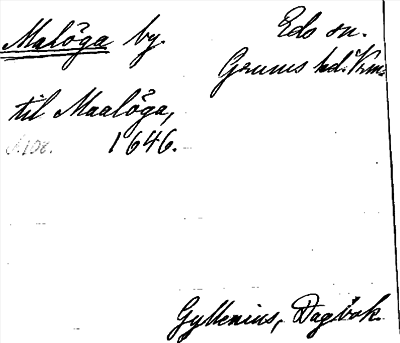 Malöga by.
Eds sn.
Grums hd. Vrm.
til Maalöga,
S. 108. 1646.
Gyllenius, Dagbok